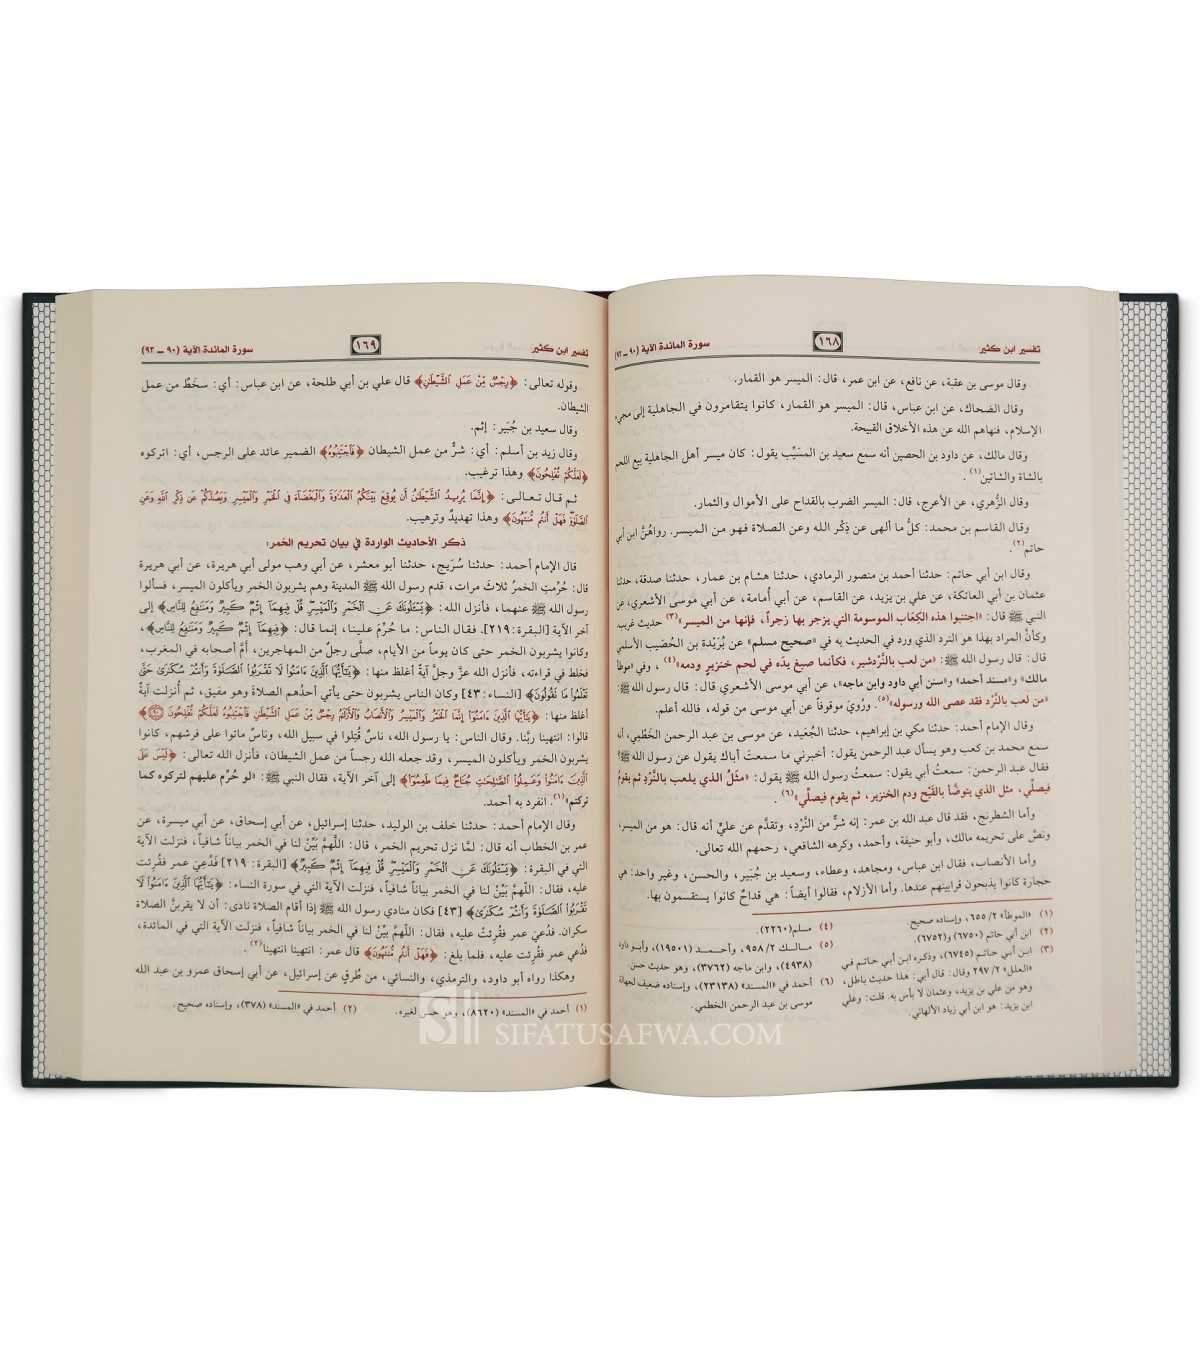 تفسير ابن كثير
١٦٨
سورة المائدة الآية (٩٠ ــ ٩٣)
وقال موسى بن عقبة، عن نافع، عن ابن عمر، قال: الميسر هو القمار.
وقال الضحاك، عن ابن عباس، قال: الميسر هو القمار، كانوا يتقامرون في الجاهلية إلى مجيء
الإسلام، فنهاهم الله عن هذه الأخلاق القبيحة.
وقال مالك، عن داود بن الحصين أنه سمع سعيد بن المسَيِّب يقول: كان ميسر أهل الجاهلية بيع اللحم
بالشاة والشاتين(١).
وقال الزُّهري، عن الأعرج، قال: الميسر الضرب بالقداح على الأموال والثمار.
وقال القاسم بن محمد: كلُّ ما ألهى عن ذِكْر الله وعن الصلاة فهو من الميسر. رواهُنَّ ابن أبي
حاتم(٢).
وقال ابن أبي حاتم: حدثنا أحمد بن منصور الرمادي، حدثنا هشام بن عمار، حدثنا صدقة، حدثنا
عثمان بن أبي العاتكة، عن علي بن يزيد، عن القاسم، عن أبي أُمامة، عن أبي موسى الأشعري، عن
النبي ﷺ قال: «اجتنبوا هذه الكِعَاب الموسومة التي يزجر بها زجراً، فإنها من الميسر»(٣) حديث غريب.
وكأنَّ المراد بهذا هو النرد الذي ورد في الحديث به في «صحيح مسلم» عن بُرَيْدة بن الحُصَيب الأسلمي
قال: قال رسول الله ﷺ: «من لعب بالنَّرْدشير، فكأنما صبغ يدَه في لحم خنزيرٍ ودمه»(٤)، وفي «موطأ
مالك» و«مسند أحمد» و«سنن أبي داود وابن ماجه»، عن أبي موسى الأشعري قال: قال رسول الله ﷺ:
«من لعب بالنَّرْد فقد عصى الله ورسوله»(٥). ورُوِيَ موقوفاً عن أبي موسى من قوله، فالله أعلم.
وقال الإمام أحمد: حدثنا مكي بن إبراهيم، حدثنا الجُعَيد، عن موسى بن عبد الرحمن الخَطْمِي، أنه
سمع محمد بن كعب وهو يسأل عبد الرحمن يقول: أخبرني ما سمعتَ أباك يقول عن رسول الله ﷺ؟
فقال عبد الرحمن: سمعتُ أبي يقول: سمعتُ رسول الله ﷺ يقول: «مثَلُ الذي يلعب بالنَّرْدِ ثم يقومُ
فيصلّي، مثل الذي يتوضَّأ بالقَيْح ودم الخنزير، ثم يقوم فيصلّي»(٦).
وأما الشطرنج، فقد قال عبد الله بن عمر: إنه شرٌّ من النَّرْدِ، وتقدَّم عن عليٍّ أنه قال: هو من الميسر،
ونصَّ على تحريمه مالك، وأبو حنيفة، وأحمد، وكرهه الشافعي، رحمهم الله تعالى.
وأما الأنصاب، فقال ابن عباس، ومجاهد، وعطاء، وسعيد بن جُبَير، والحسن، وغير واحد: هي
حجارة كانوا يذبحون قرابينهم عندها. وأما الأزلام، فقالوا أيضاً: هي قداحٌ كانوا يستقسمون بها.
(١) «الموطأ» ٢/ ٦٥٥، وإسناده صحيح.
(٢) ابن أبي حاتم (٦٧٥٠) و(٦٧٥٢).
(٣) ابن أبي حاتم (٦٧٤٥)، وذكره ابن أبي حاتم في
«العلل» ٢/ ٢٩٧ وقال: قال أبي: هذا حديث باطل،
وهو من علي بن يزيد، وعثمان لا بأس به. قلت: وعلي
ابن يزيد: هو ابن أبي زياد الألهاني.
(٤) مسلم (٢٢٦٠).
(٥) مالك ٢/ ٩٥٨، وأحمد (١٩٥٠١)، وأبو داود
(٤٩٣٨)، وابن ماجه (٣٧٦٢)، وهو حديث حسن.
(٦) أحمد في «المسند» (٢٣١٣٨)، وإسناده ضعيف لجهالة
موسى بن عبد الرحمن الخطمي.
تفسير ابن كثير
١٦٩
سورة المائدة الآية (٩٠ ــ ٩٣)
وقوله تعالى: ﴿رِجْسٌ مِّنْ عَمَلِ ٱلشَّيْطَٰنِ﴾ قال علي بن أبي طلحة، عن ابن عباس: أي: سخَطٌ من عمل
الشيطان.
وقال سعيد بن جُبَير: إثم.
وقال زيد بن أسلم: أي: شرٌّ من عمل الشيطان ﴿فَٱجْتَنِبُوهُ﴾ الضمير عائد على الرجس، أي: اتركوه
﴿لَعَلَّكُمْ تُفْلِحُونَ﴾ وهذا ترغيب.
ثم قال تعالى: ﴿إِنَّمَا يُرِيدُ ٱلشَّيْطَٰنُ أَن يُوقِعَ بَيْنَكُمُ ٱلْعَدَٰوَةَ وَٱلْبَغْضَآءَ فِى ٱلْخَمْرِ وَٱلْمَيْسِرِ وَيَصُدَّكُمْ عَن ذِكْرِ ٱللَّهِ وَعَنِ
ٱلصَّلَوٰةِ فَهَلْ أَنتُم مُّنتَهُونَ﴾ وهذا تهديدٌ وترهيب.
ذكر الأحاديث الواردة في بيان تحريم الخمر:
قال الإمام أحمد: حدثنا سُرَيج، حدثنا أبو معشر، عن أبي وهب مولى أبي هريرة، عن أبي هريرة
قال: حُرِّمتِ الخمرُ ثلاثَ مرات، قدم رسول الله ﷺ المدينة وهم يشربون الخمر ويأكلون الميسر، فسألوا
رسول الله ﷺ عنهما، فأنزل الله: ﴿يَسْـَٔلُونَكَ عَنِ ٱلْخَمْرِ وَٱلْمَيْسِرِ قُلْ فِيهِمَآ إِثْمٌ كَبِيرٌ وَمَنَٰفِعُ لِلنَّاسِ﴾ إلى
آخر الآية [البقرة: ٢١٩]. فقال الناس: ما حُرِّمَ علينا، إنما قال: ﴿فِيهِمَآ إِثْمٌ كَبِيرٌ وَمَنَٰفِعُ لِلنَّاسِ﴾،
وكانوا يشربون الخمر حتى كان يوماً من الأيام، صلَّى رجلٌ من المهاجرين، أمَّ أصحابه في المغرب،
فخلط في قراءته، فأنزل الله عزَّ وجلَّ آيةً أغلظ منها: ﴿يَٰٓأَيُّهَا ٱلَّذِينَ ءَامَنُوا۟ لَا تَقْرَبُوا۟ ٱلصَّلَوٰةَ وَأَنتُمْ سُكَٰرَىٰ حَتَّىٰ
تَعْلَمُوا۟ مَا تَقُولُونَ﴾ [النساء: ٤٣] وكان الناس يشربون حتى يأتي أحدُهم الصلاةَ وهو مفيق، ثم أُنزلت آيةٌ
أغلظ منها: ﴿يَٰٓأَيُّهَا ٱلَّذِينَ ءَامَنُوٓا۟ إِنَّمَا ٱلْخَمْرُ وَٱلْمَيْسِرُ وَٱلْأَنصَابُ وَٱلْأَزْلَٰمُ رِجْسٌ مِّنْ عَمَلِ ٱلشَّيْطَٰنِ فَٱجْتَنِبُوهُ لَعَلَّكُمْ تُفْلِحُونَ ۝٩٠﴾
قالوا: انتهينا ربَّنا. وقال الناس: يا رسول الله، ناسٌ قُتِلوا في سبيل الله، وناسٌ ماتوا على فرشهم، كانوا
يشربون الخمر ويأكلون الميسر، وقد جعله الله رجساً من عمل الشيطان، فأنزل الله تعالى: ﴿لَيْسَ عَلَى
ٱلَّذِينَ ءَامَنُوا۟ وَعَمِلُوا۟ ٱلصَّٰلِحَٰتِ جُنَاحٌ فِيمَا طَعِمُوٓا۟﴾ إلى آخر الآية، فقال النبي ﷺ: «لو حُرِّم عليهم لتركوه كما
تركتم»(١). انفرد به أحمد.
وقال الإمام أحمد: حدثنا خلف بن الوليد، حدثنا إسرائيل، عن أبي إسحاق، عن أبي ميسرة، عن
عمر بن الخطاب أنه قال: لمَّا نزل تحريم الخمر، قال: اللَّهمَّ بَيِّنْ لنا في الخمر بياناً شافياً، فنزلت الآية
التي في البقرة: ﴿يَسْـَٔلُونَكَ عَنِ ٱلْخَمْرِ وَٱلْمَيْسِرِ قُلْ فِيهِمَآ إِثْمٌ كَبِيرٌ﴾ [البقرة: ٢١٩] فَدُعِيَ عمر فقُرِئت
عليه، فقال: اللَّهمَّ بَيِّنْ لنا في الخمر بياناً شافياً، فنزلت الآية التي في سورة النساء: ﴿يَٰٓأَيُّهَا ٱلَّذِينَ ءَامَنُوا۟ لَا
تَقْرَبُوا۟ ٱلصَّلَوٰةَ وَأَنتُمْ سُكَٰرَىٰ﴾ [٤٣] فكان منادي رسول الله ﷺ إذا أقام الصلاة نادى: أن لا يقربنَّ الصلاة
سكران. فدُعِيَ عمر فقُرِئتْ عليه، فقال: اللَّهمَّ بيِّنْ لنا في الخمر بياناً شافياً، فنزلت الآية التي في المائدة،
فدُعي عمر فقُرئت عليه، فلما بلغ: ﴿فَهَلْ أَنتُم مُّنتَهُونَ﴾ قال عمر: انتهينا انتهينا(٢).
وهكذا رواه أبو داود، والترمذي، والنسائي، من طُرقٍ عن إسرائيل، عن أبي إسحاق عمرو بن عبد الله
(١) أحمد في «المسند» (٨٦٢٠)، وهو حسن لغيره.
(٢) أحمد في «المسند» (٣٧٨)، وإسناده صحيح.
SIFATUSAFWA.COM